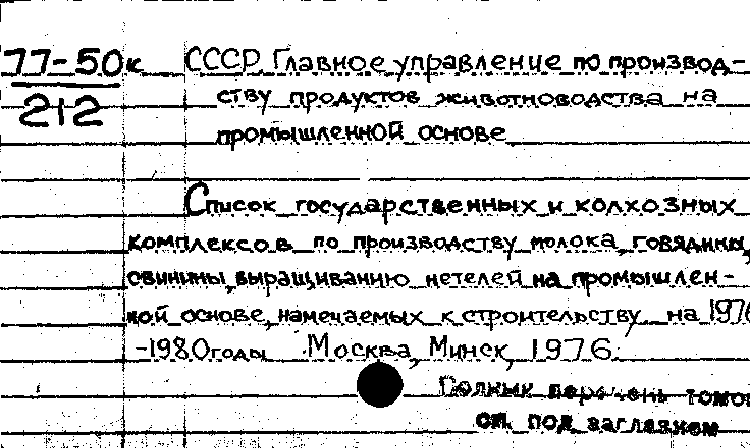 77-50к СССР. Главное управление по производ-
212 ству продуктов животноводства на
промышленной основе
Список государственных и колхозных
комплексов по производству молока, говядины,
свинины, выращиванию нетелей на промышлен-
ной основе, намечаемых к строительству на 1976
-1980 годы. Москва, Минск, 1976.
Полный перечень томов
см. под заглавием